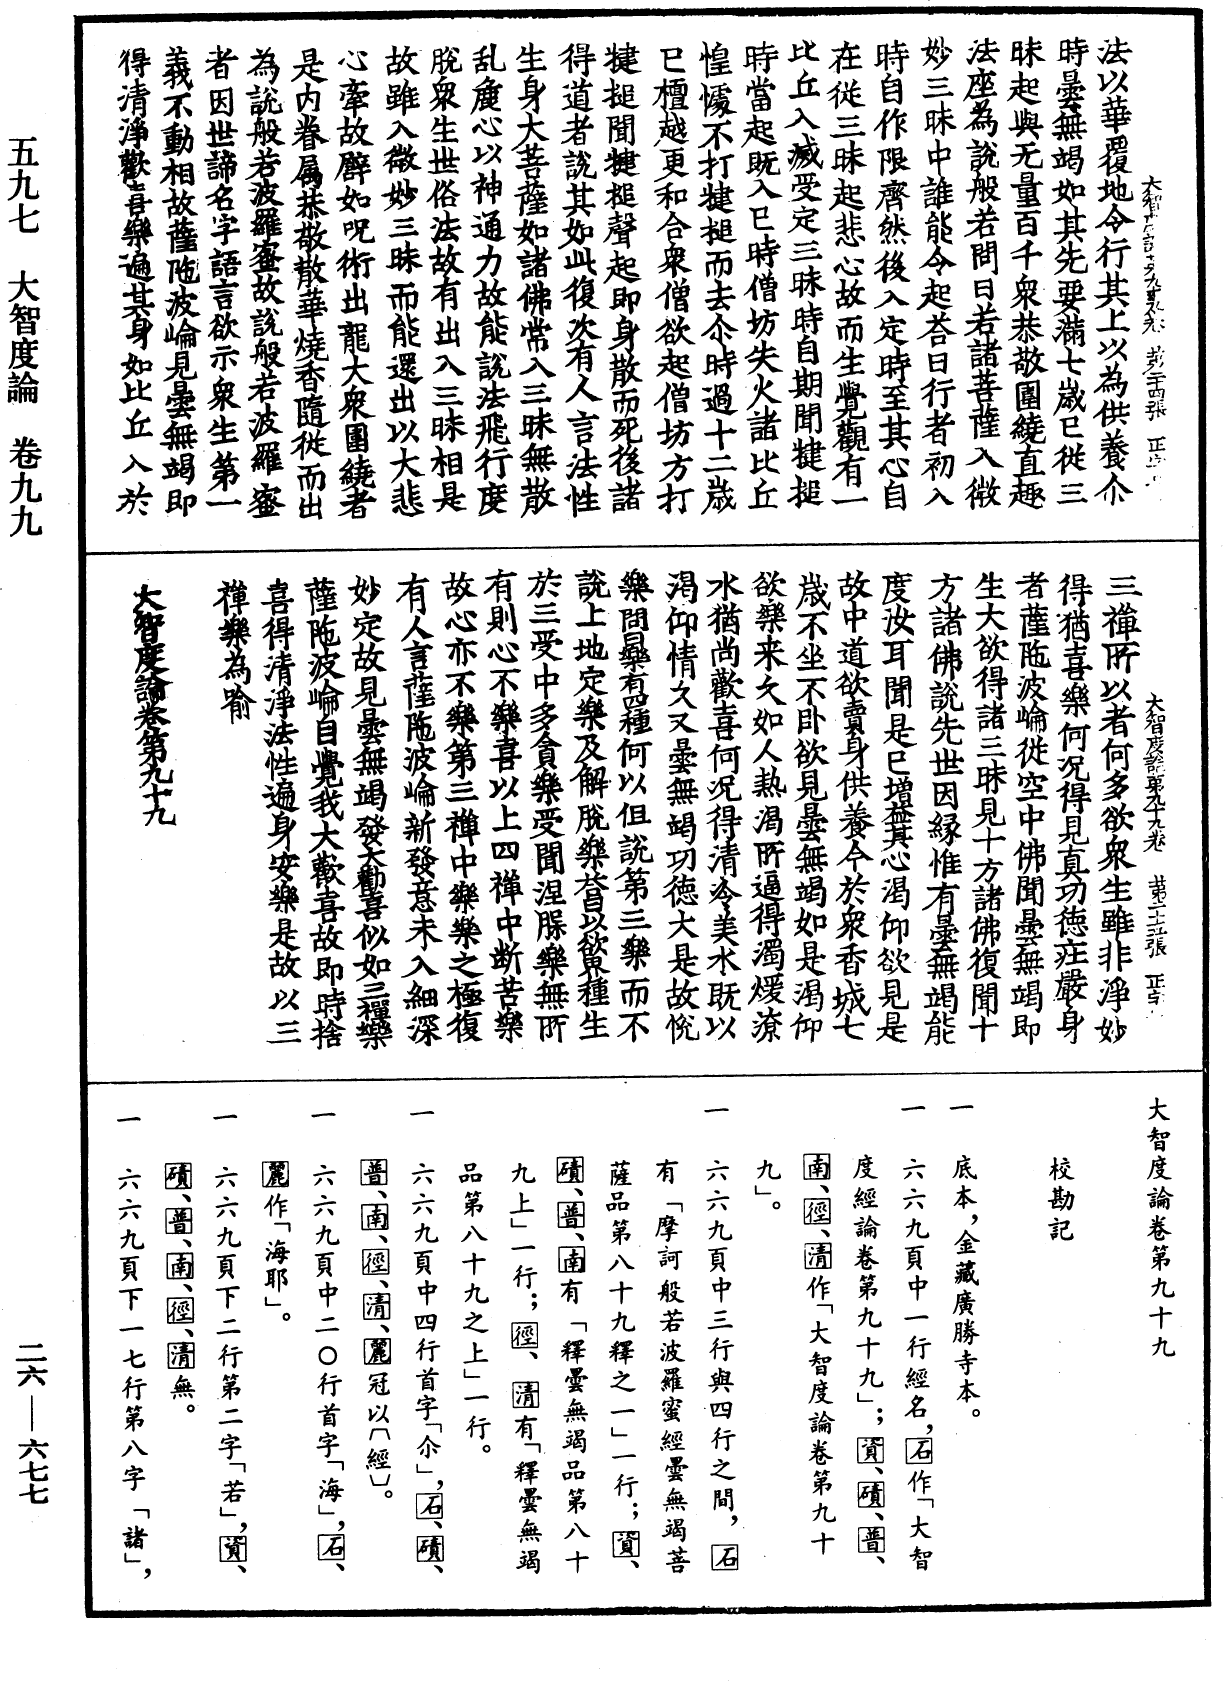 五九七　大智度論　卷九九
二六—六七七
法以華覆地令行其上以為供養尒
時曇無竭如其先要滿七歲已從三
昧起與无量百千衆恭敬圍繞直趣
法座為說般若問曰若諸菩薩入微
妙三昧中誰能令起荅曰行者初入
時自作限齊然後入定時至其心自
在從三昧起悲心故而生覺觀有一
比丘入滅受定三昧時自期聞揵搥
時當起既入已時僧坊失火諸比丘
惶懅不打揵搥而去尒時過十二歲
已檀越更和合衆僧欲起僧坊方打
揵搥聞揵搥聲起即身散而死後諸
得道者說其如此復次有人言法性
生身大菩薩如諸佛常入三昧無散
乱麁心以神通力故能說法飛行度
脫衆生世俗法故有出入三昧相是
故雖入微妙三昧而能還出以大悲
心牽故譬如呪術出龍大衆圍繞者
是內眷属恭敬散華燒香隨從而出
為說般若波羅蜜故說般若波羅蜜
者因世諦名字語言欲示衆生第一
義不動相故薩陁波崘見曇無竭即
得清淨歡喜樂遍其身如比丘入於
大智度論第九十九卷　第二十五張
三禪所以者何多欲衆生雖非淨妙
得猶喜樂何況得見真功德庄嚴身
者薩陁波崘從空中佛聞曇無竭即
生大欲得諸三昧見十方諸佛復聞十
方諸佛說先世因緣惟有曇無竭能
度汝耳聞是已增益其心渴仰欲見是
故中道欲賣身供養今於衆香城七
歲不坐不卧欲見曇無竭如是渴仰
欲樂来久如人熱渴所逼得濁煖潦
水猶尚歡喜何況得清冷美水既以
渴仰情久又曇無竭功德大是故恱
樂問曰樂有四種何以但說第三樂而不
說上地定樂及解脫樂荅曰以欲界種生
於三受中多貪樂受聞涅槃樂無所
有則心不樂喜以上四禪中斷苦樂
故心亦不樂第三禪中樂樂之極復
有人言薩陁波崘新發意未入細深
妙定故見曇無竭發大勸喜似如三種樂
薩陁波崘自覺我大歡喜故即時捨
喜得清淨法性遍身安樂是故以三
禪樂為喻
大智度論卷第九十九
大智度論卷第九十九
校勘記
一　底本，金藏廣勝寺本。
一　六六九頁中一行經名，石作「大智
度經論卷第九十九」；資、磧、普、
南、徑、清作「大智度論卷第九十
九」。
一　六六九頁中三行與四行之間，石
有「摩訶般若波羅蜜經曇無竭菩
薩品第八十九釋之一」一行；資、
磧、普、南有「釋曇無竭品第八十
九上」一行；徑、清有「釋曇無竭
品第八十九之上」一行。
一　六六九頁中四行首字「尒」，石、磧、
普、南、徑、清、麗冠以〔經〕。
一　六六九頁中二〇行首字「海」，石、
麗作「海耶」。
一　六六九頁下二行第二字「若」，資、
磧、普、南、徑、清無。
一　六六九頁下一七行第八字「諸」，